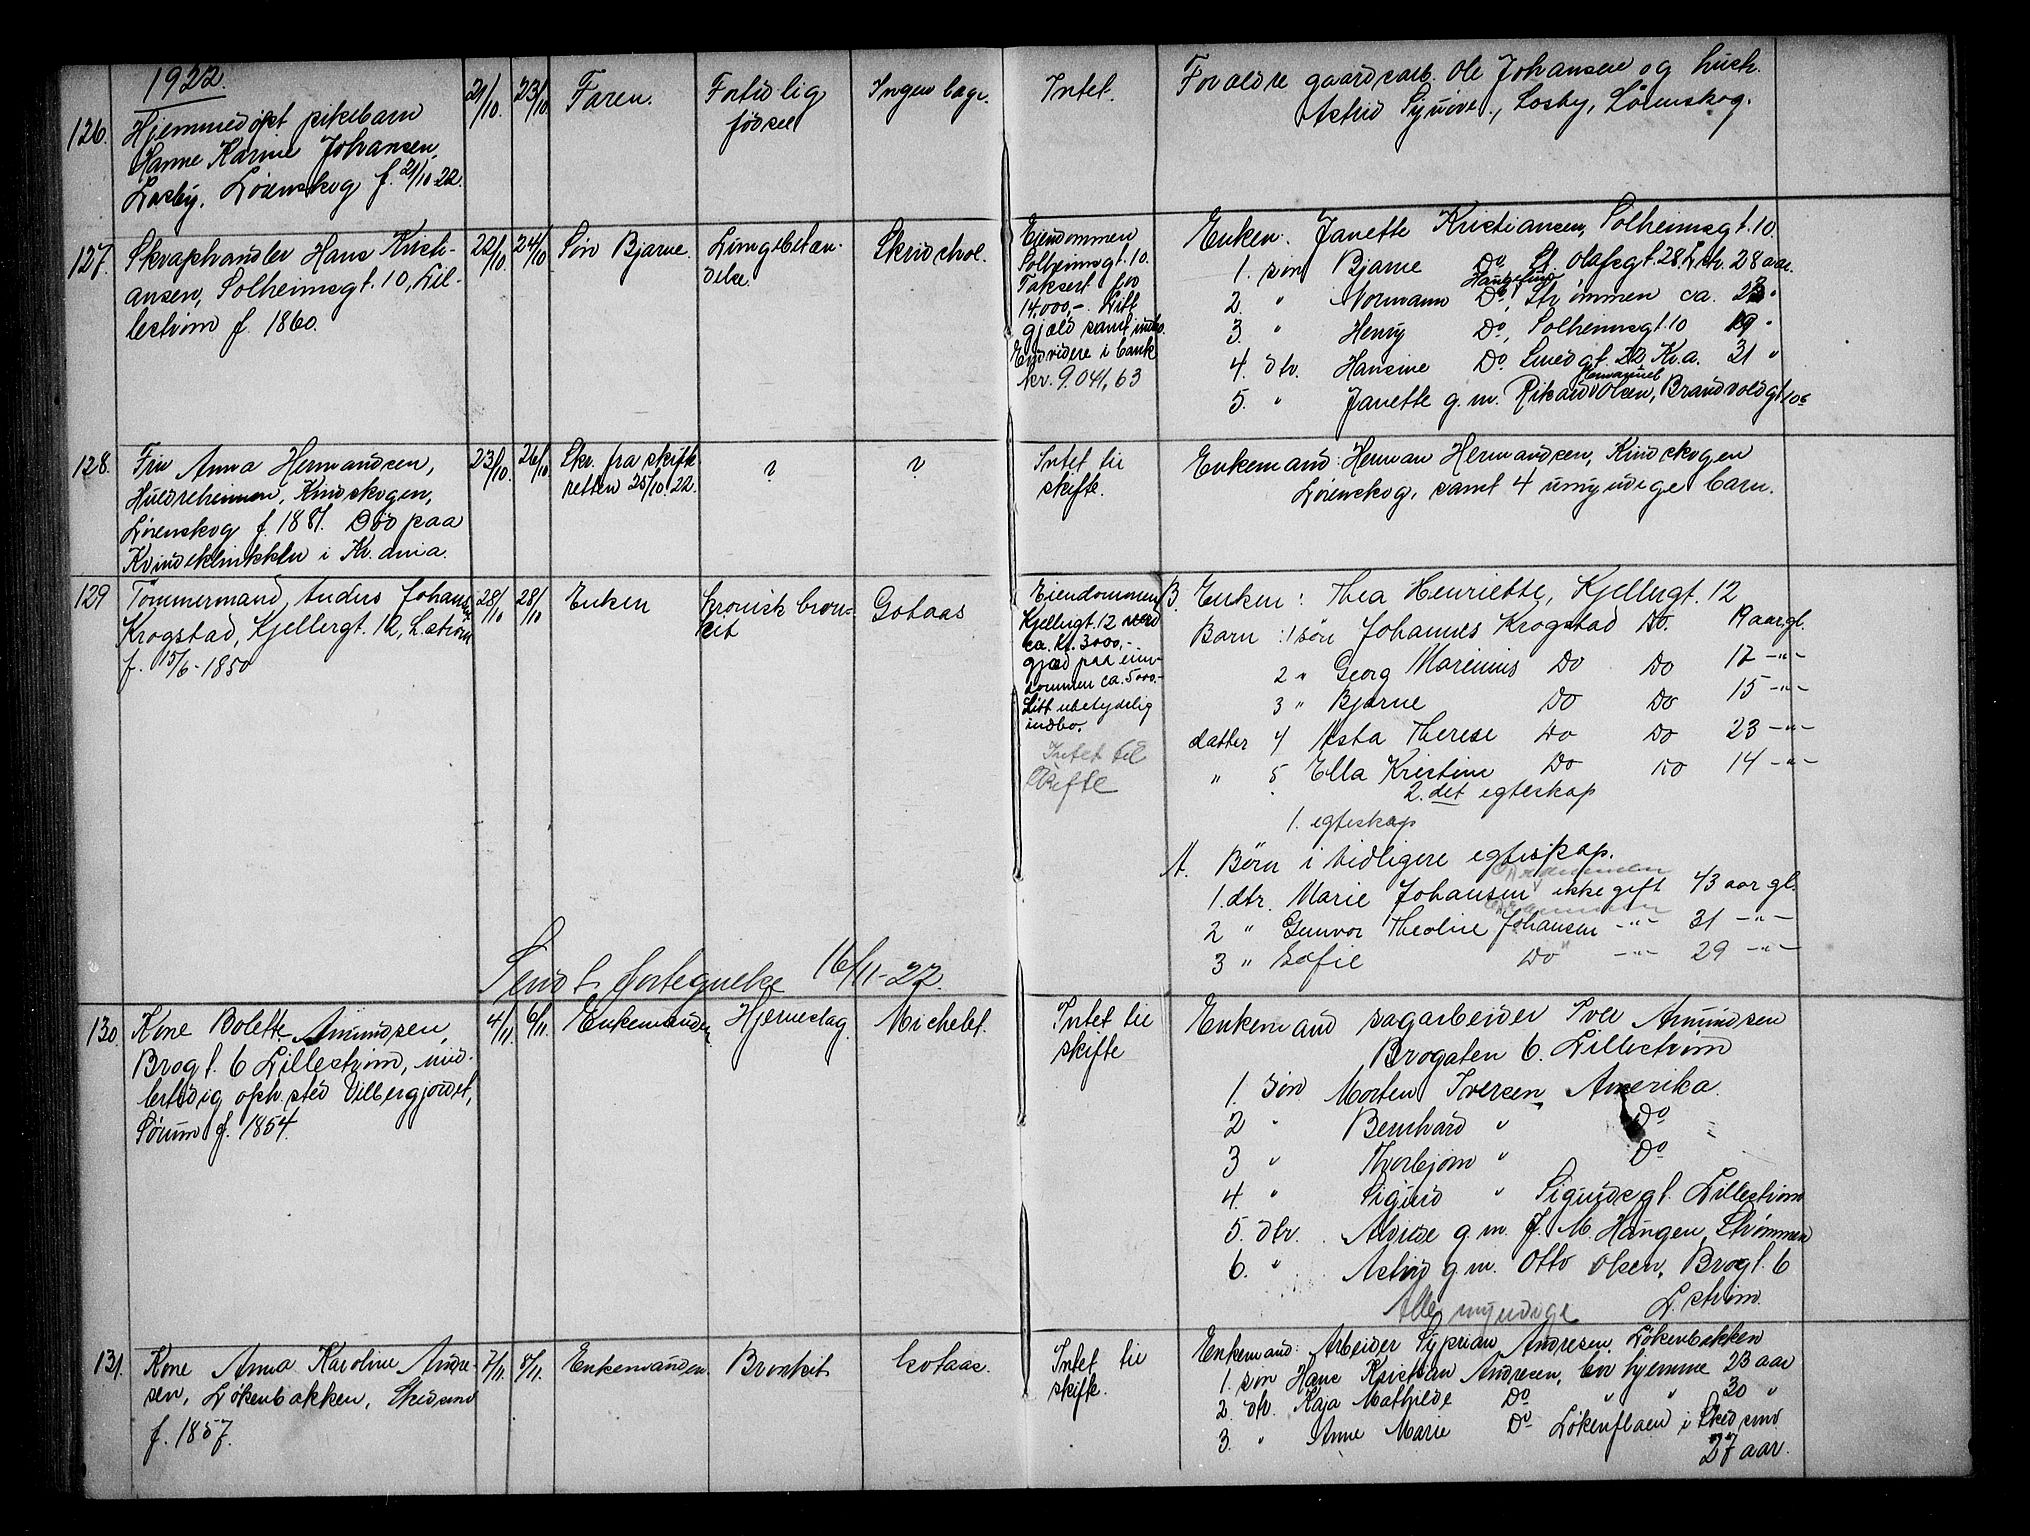 1922.
126. Hjemmedøpt pikebarn
Hanne Karine Johansen,
Losby, Lørenskog f. 21/10-22.
21/10. 23/10. Faren. Fortidlig
fødsel
Ingen læge. Intet.
Forældre gaardsarb. Ole Johansen og hust.
Astrid Synøve, Losby, Lørenskog.
127. Skraphandler Hans Kristi-
ansen, Solheimsgt. 10, Lil-
lestrøm f. 1860.
22/10. 24/10 Søn Bjarne. Lungebetæn-
delse.
Skridshol.
Eiendommen
Solheimsgt. 10.
Taksert for
14.000,- Litt
gjæld samt indbo.
Endvidere i bank
kr. 9.041,63
Enken: Janette Kristiansen, Solheimsgt. 10.
1. søn Bjarne Do St. Olafsgt. 28. L.str. 28 aar.
2. " Normann Do, Strømmen ca. 23 "
3. " Henry Do, Solheimsgt. 10 19 "
4. dtr. Hansine Do. Smedgt. 22 Kr.a. 31 "
5. " Janette g.m. Rikard Olsen, Brandvoldgt. 10
128. Fru Anna Hermandsen,
Huldreheimen, Knudskogen,
Lørenskog f. 1881. Død paa
Kvindeklinikken i Kr.ania.
23/10. 26/10 Skr. fra skifte-
retten 25/10.22.
? ?
Intet til
skifte.
Enkemand: Herman Hermandsen, Knudskogen
Lørenskog, samt 4 umyndige barn.
129 Tømmermand Anders Johansen
Krogstad, Kjellergt. 12, L.strøm
f. 15/6-1850
28/10 28/10 Enken Kronisk bron-
kit
Gotaas
Eiendommen
Kjellergt. 12 verd
ca. Kr. 3000,-
gjæld paa eien-
dommen ca. 5000.-
Litt ubetydelig
indbo.
Intet til
skifte
B. Enken: Thea Henriette, Kjellergt. 12
Barn: 1 søn Johannes Krogstad Do. 19 aar gl.
2 " Georg Marinius Do Do 17 -"-
3 " Bjarne Do Do 15 -"-
datter 4 Asta Therese Do Do 23 -"-
" 5 Ella Kristine Do Do 14 -"-
2. det egteskap
1. egteskap
A. Børn i tidligere egteskap.
1. dtr. Marie Johansen ikke gift 43 aar gl.
2 " Gunvor Theoline Johansen -"- 31 -"-
3 " Sofie Do -"- 29 -"-
Send t. fortegnelse 16/11-22.
130. Kone Bolette Amundsen,
Brogt. 6 Lillestrøm, mid-
lertidig oph.sted Vilbergjordet,
Sørum f. 1854.
4/11. 6/11. Enkemanden. Hjerneslag. Michelet.
Intet til
skifte
Enkemand sagarbeider Iver Amundsen
Brogaten 6. Lillestrøm
1. søn Morten Iversen, Amerika.
2 " Bernhard " Do
3 " Thorbjørn " Do
4. " Sigurd " Sigurdsgt. Lillestrøm
5. dtr. Alvide g.m. J. M. Haugen, Strømmen
6. " Astrid g.m. Otto Olsen, Brogt. 6
L.strøm.
Alle myndige
131. Kone Anna Karoline Andre-
sen, Løkenbakken, Skedsmo
f. 1857.
7/11. 8/11. Enkemanden. Bronkit Gotaas.
Intet til
skifte.
Enkemand: Arbeider Syprian Andresen, Løkenbakken
1. søn Hans Kristian Andresen, bor hjemme 23 aar
2. dtr. Kaja Mathilde Do " " 30 "
3. " Anne Marie Do Løkenflaen i Skedsmo
27 aar.